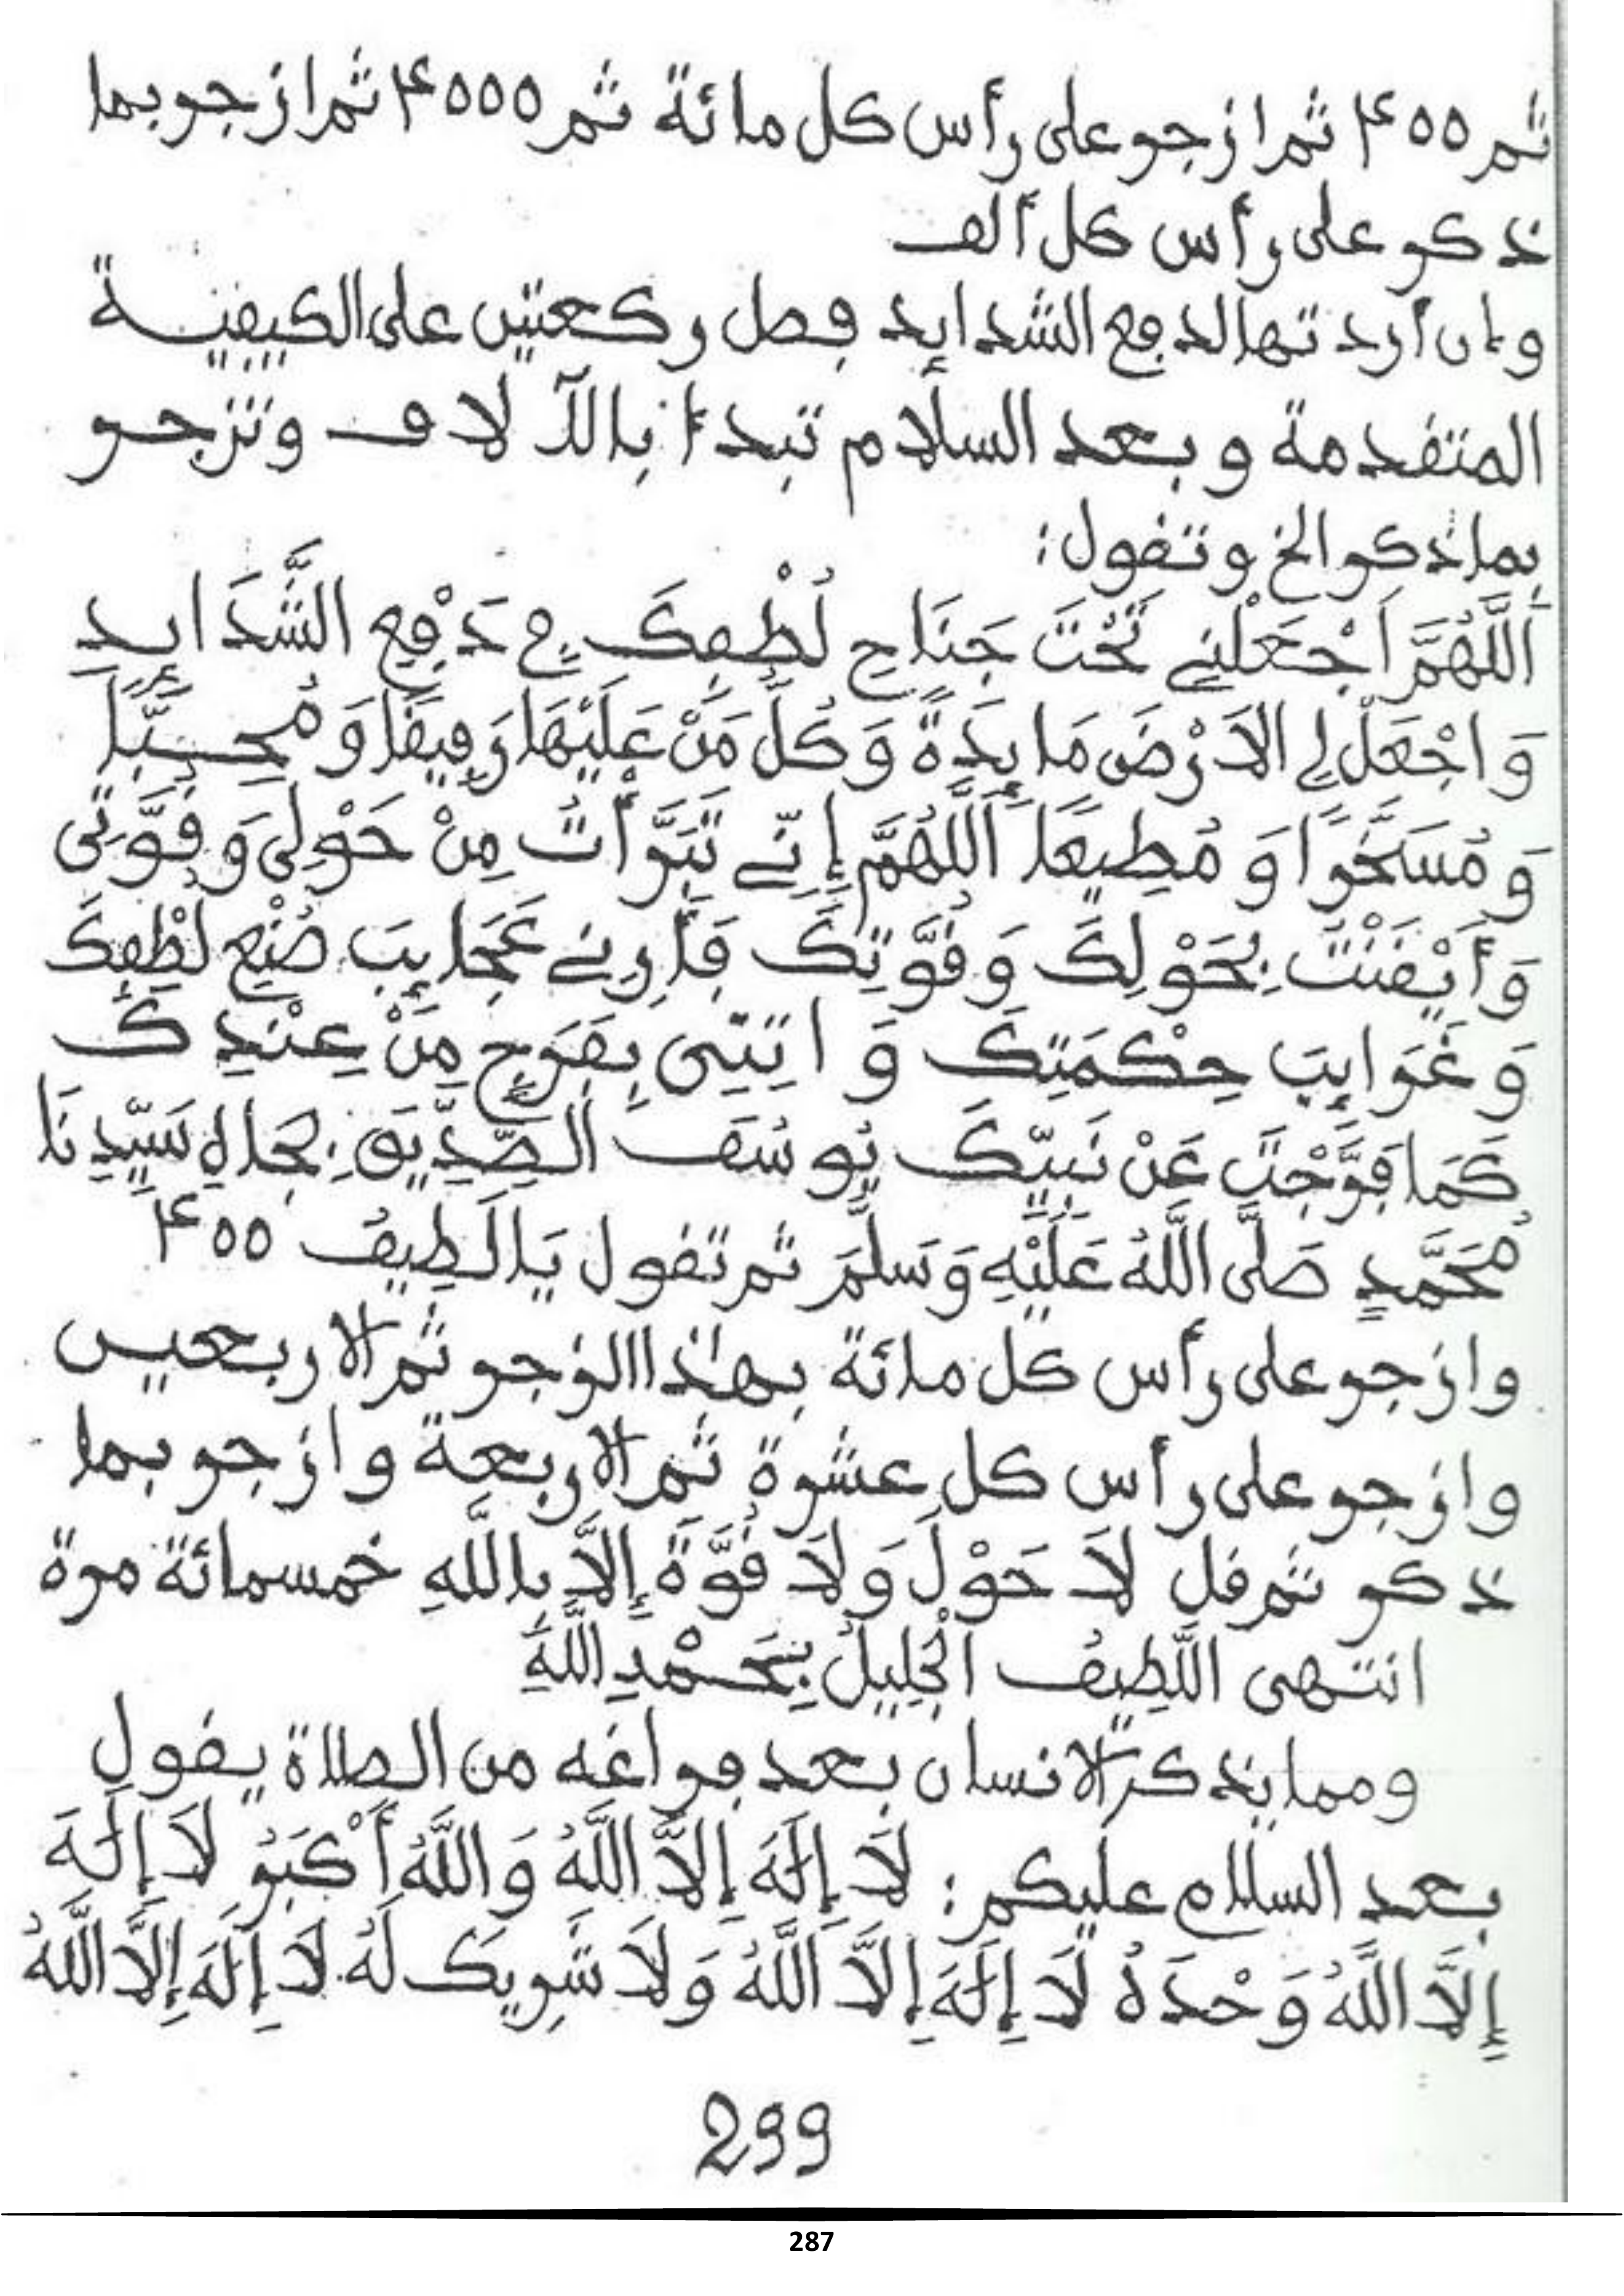 ثم ٤٠٠ ثم ازجر على رأس كل مائة ثم ٤٠٠٠ ثم ازجر بما
ذكر على رأس كل ألف
وإن أردتها لدفع الشدايد فصل ركعتين على الكيفية
المتقدمة وبعد السلام تبدأ بالآلاف وتزجر
بما ذكر الخ وتقول:
اَللَّهُمَّ اَجْعَلْنِي تَحْتَ جَنَاحِ لُطْفِكَ فِي دَفْعِ الشَّدَايِدِ
وَاجْعَلْ لِي الاَرْضَ مَايِدَةً وَكُلَّ مَنْ عَلَيْهَا رَفِيقًا وَمُحِبًّا
وَمُسَخَّرًا وَمُطِيعًا اَللَّهُمَّ إِنِّي تَبَرَّأْتُ مِنْ حَوْلِي وَقُوَّتِي
وَأَيْقَنْتُ بِحَوْلِكَ وَقُوَّتِكَ فَأَرِنِي عَجَايِبَ صُنْعِ لُطْفِكَ
وَغَرَايِبَ حِكْمَتِكَ وَاتِنِي بِفَرَجٍ مِنْ عِنْدِكَ
كَمَا فَرَّجْتَ عَنْ نَبِيِّكَ يُوسُفَ الصِّدِّيقِ بِجَاهِ سَيِّدِنَا
مُحَمَّدٍ صَلَّى اللَّهُ عَلَيْهِ وَسَلَّمَ ثم تقول يَا لَطِيفُ ٤٠٠
وازجر على رأس كل مائة بهذا الزجر ثم الاربعين
وازجر على رأس كل عشرة ثم الاربعة وازجر بما
ذكر ثم قل لاَ حَوْلَ وَلاَ قُوَّةَ إِلاَّ بِاللَّهِ خمسمائة مرة
انتهى اللَّطِيفُ الْجَلِيلُ بِحَمْدِ اللَّهِ
ومما يذكر الانسان بعد فراغه من الصلاة يقول
بعد السلام عليكم: لاَ إِلَهَ إِلاَّ اللَّهُ وَاللَّهُ أَكْبَرُ لاَ إِلَهَ
إِلاَّ اللَّهُ وَحْدَهُ لاَ إِلَهَ إِلاَّ اللَّهُ وَلاَ شَرِيكَ لَهُ لاَ إِلَهَ إِلاَّ اللَّهُ
299
287